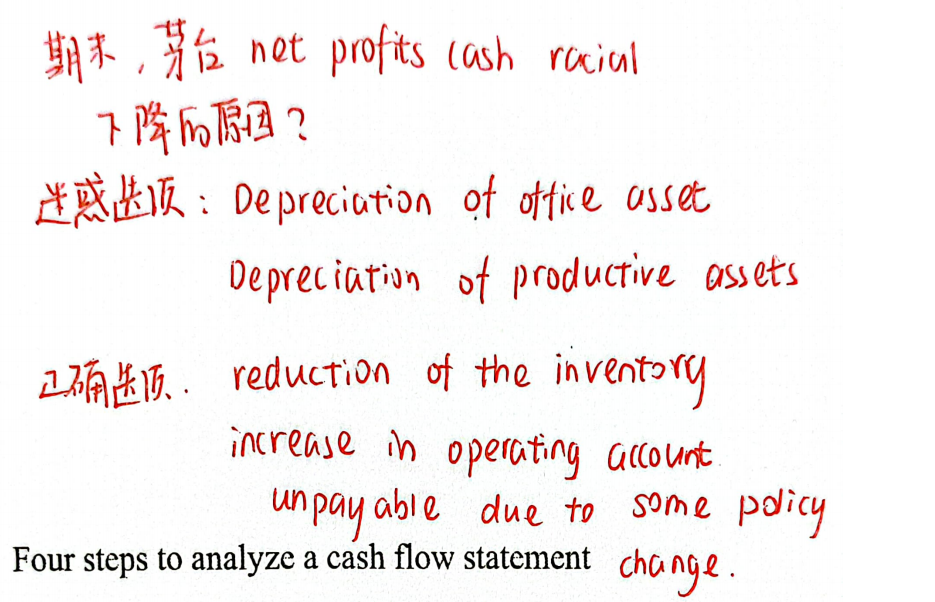 期末，茅台 net profits cash racial
下降的原因？
迷惑选项：Depreciation of office asset
Depreciation of productive assets
正确选项． reduction of the inventory
increase in operating account
unpayable due to some policy
Four steps to analyze a cash flow statement change.